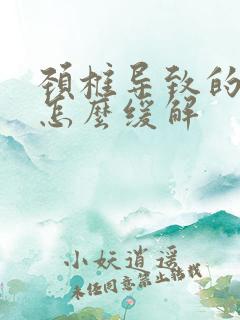 颈椎导致的
怎麽缓解
小妖逍遥
未经同意禁止转载